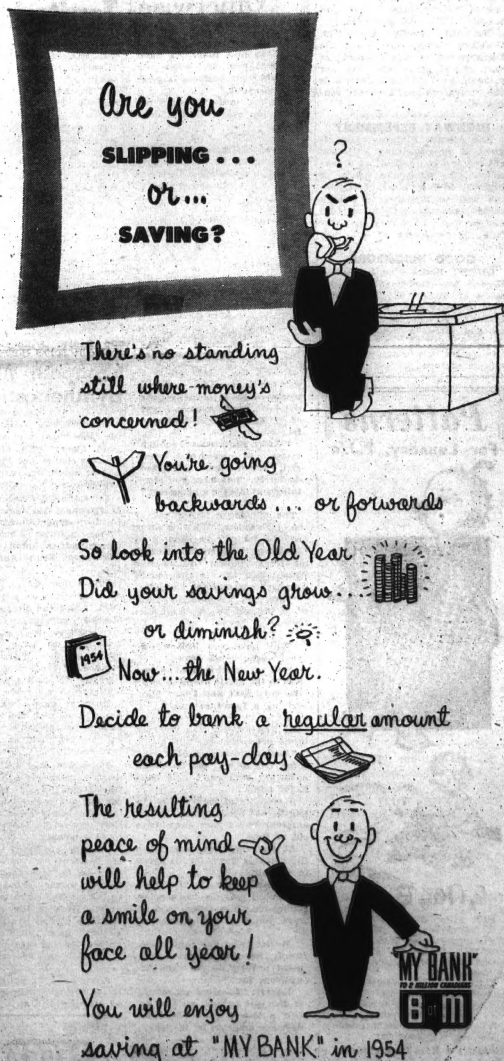 Are you
SLIPPING...
or...
SAVING?
?
There's no standing
still where money's
concerned!
You're going
backwards... or forwards
So look into the Old Year
Did your savings grow...
or diminish?
1954
Now... the New Year.
Decide to bank a regular amount
each pay-day
The resulting
peace of mind
will help to keep
a smile on your
face all year!
"MY BANK"
TO 2 MILLION CANADIANS
B of M
You will enjoy
saving at "MY BANK" in 1954